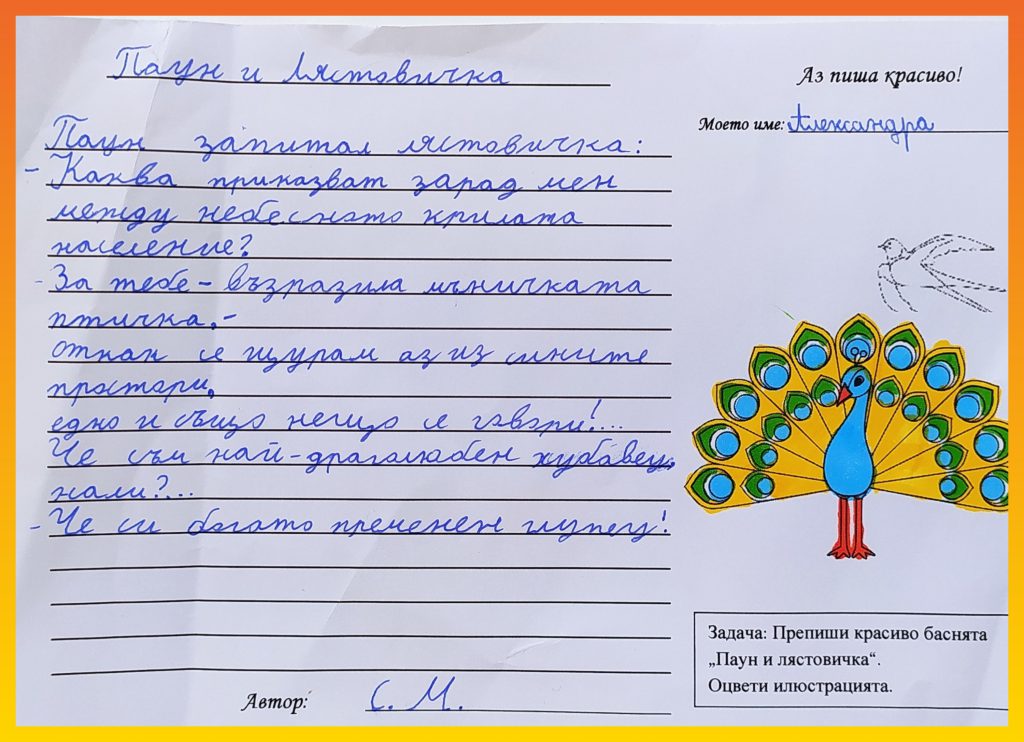 Паун и Лястовичка
Аз пиша красиво!
Моето име: Александра
Паун запитал лястовичка:
- Каква приказват зарад мен
между небесното крилата
население?
- За тебе - възразила мъничката
птичка. -
откак се щурам аз из сините
простори,
едно и също нещо се говори!...
Че съм най-драголюбен хубавец,
нали?...
- Че си богато пременен глупец!
Автор: С. М.
Задача: Препиши красиво баснята
„Паун и лястовичка“.
Оцвети илюстрацията.